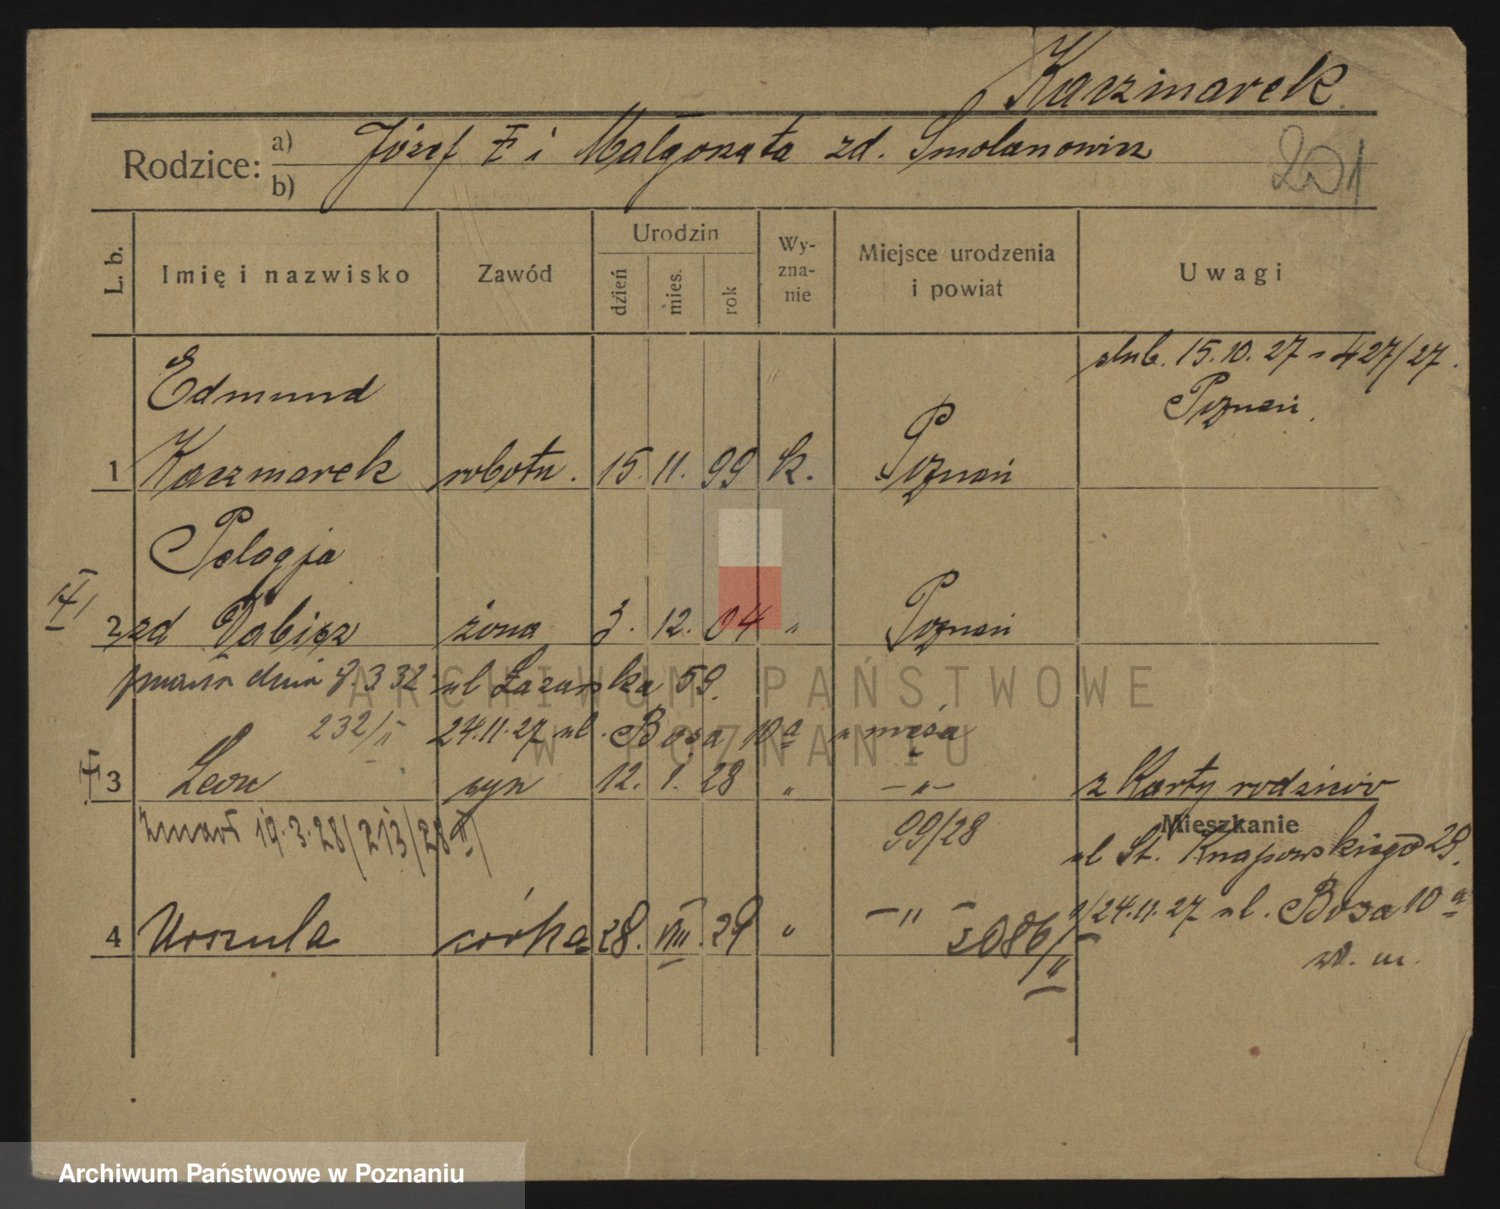 Kaczmarek
Rodzice: a) Józef i Małgorzata zd. Smolanowicz
b)
201
L. b. Imię i nazwisko Zawód Urodzin dzień mies. rok Wyzna-nie Miejsce urodzenia i powiat Uwagi
ślub. 15.10.27 - 427/27.
Poznań.
Edmund
1 Kaczmarek robotn. 15. 11. 99 k. Poznań
Pelagja
2 zd Dabisz żona 3. 12. 04 " Poznań
zmarła dnia 9.3 32 ul Łazarska 59.
232/II 24.11.27 ul. Bosa 10a u męża
3 Leon syn 12. 1. 28 " -"- z Karty rodziców
Zmarł 19.3.28/213/28 II/ 99/28
Mieszkanie
ul St. Knapowskiego 29.
4 Urszula córka 28. VIII. 29 " -"- 2086/II
24.11.27 ul. Bosa 10 a
w. m.
ARCHIWUM PAŃSTWOWE
W POZNANIU
Archiwum Państwowe w Poznaniu